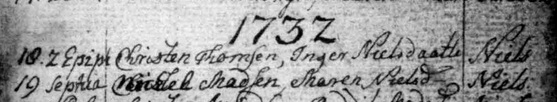 1732
18. 2 Epiph Christen Thomsen, Inger Nielsdaatte Niels
19 Septua Michel Madsen Maren Nielsd Niels